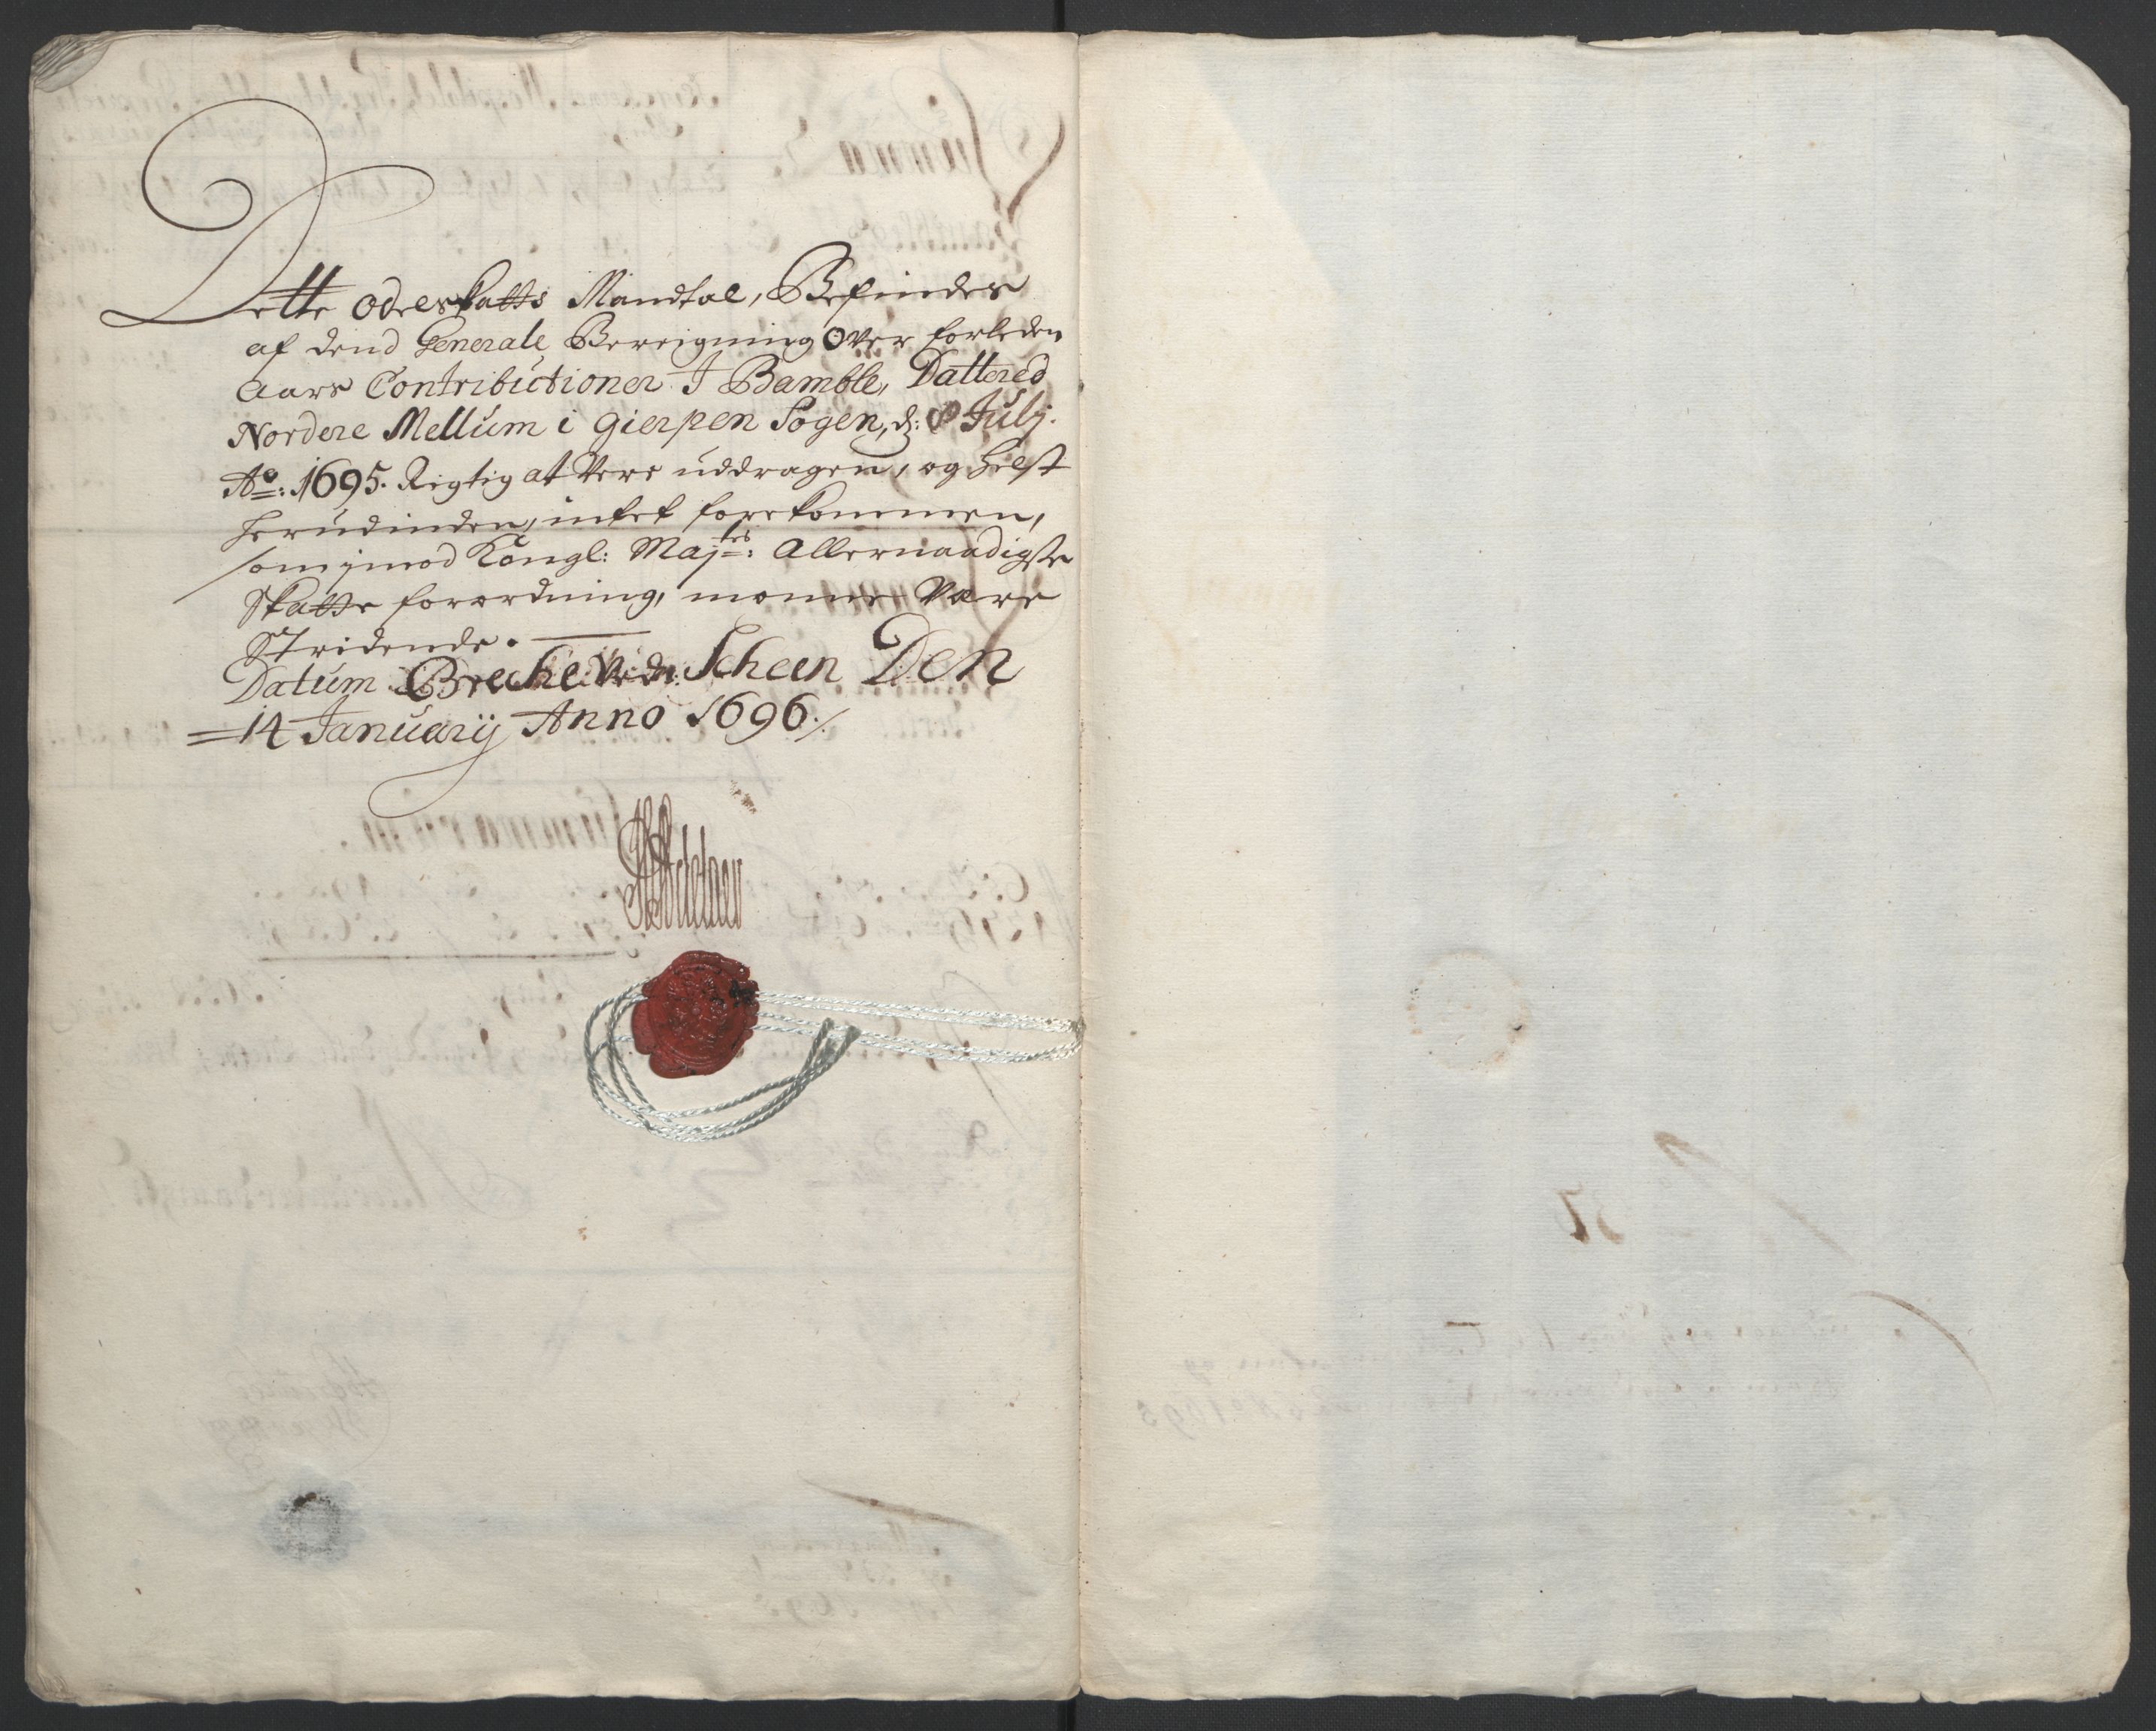 Dette Odelskatts Mandtal, Befindes
af dend Generale Bereigning Over forleden
Aars Contributioner I Bamble, Dattered
Nordere Mellum i Gierpen Sogen, d: 8 Julij.
Ao: 1695. Rigtig at Vere uddragen, og helst
herudinden, intet forekommen,
som imod Kongl: Majtes: Allernaadigste
Skatte forordning, monne Være
Stridende.
Datum Breche Ved Scheen Den
14 Januarij Anno 1696./.